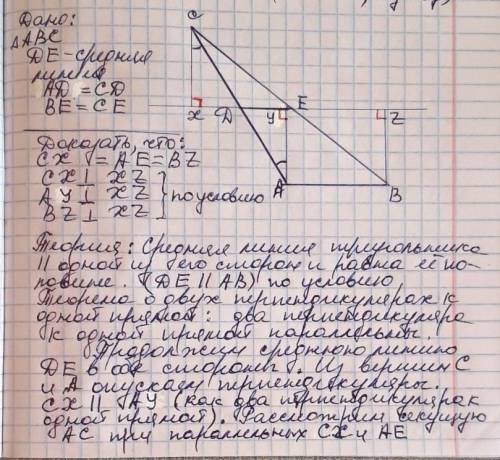 Дано:
△ABC
DE-средняя
линия
AD = CD
BE = CE
Доказать, что:
CX = AE = BZ
CX ⊥ XZ
AY ⊥ XZ } по условию
BZ ⊥ XZ
C
X D Y E Z
A B
Теория: Средняя линия треугольника
|| одной из его сторон и равна её по-
ловине. (DE || AB) по условию
Теорема о двух перпендикулярах к
одной прямой: два перпендикуляра
к одной прямой параллельны.
Продолжим среднюю линию
DE в обе стороны. Из вершин C
и A опускаем перпендикуляры.
CX || AY (как два перпендикуляра к
одной прямой). Рассмотрим секущую
AC при параллельных CX и AE